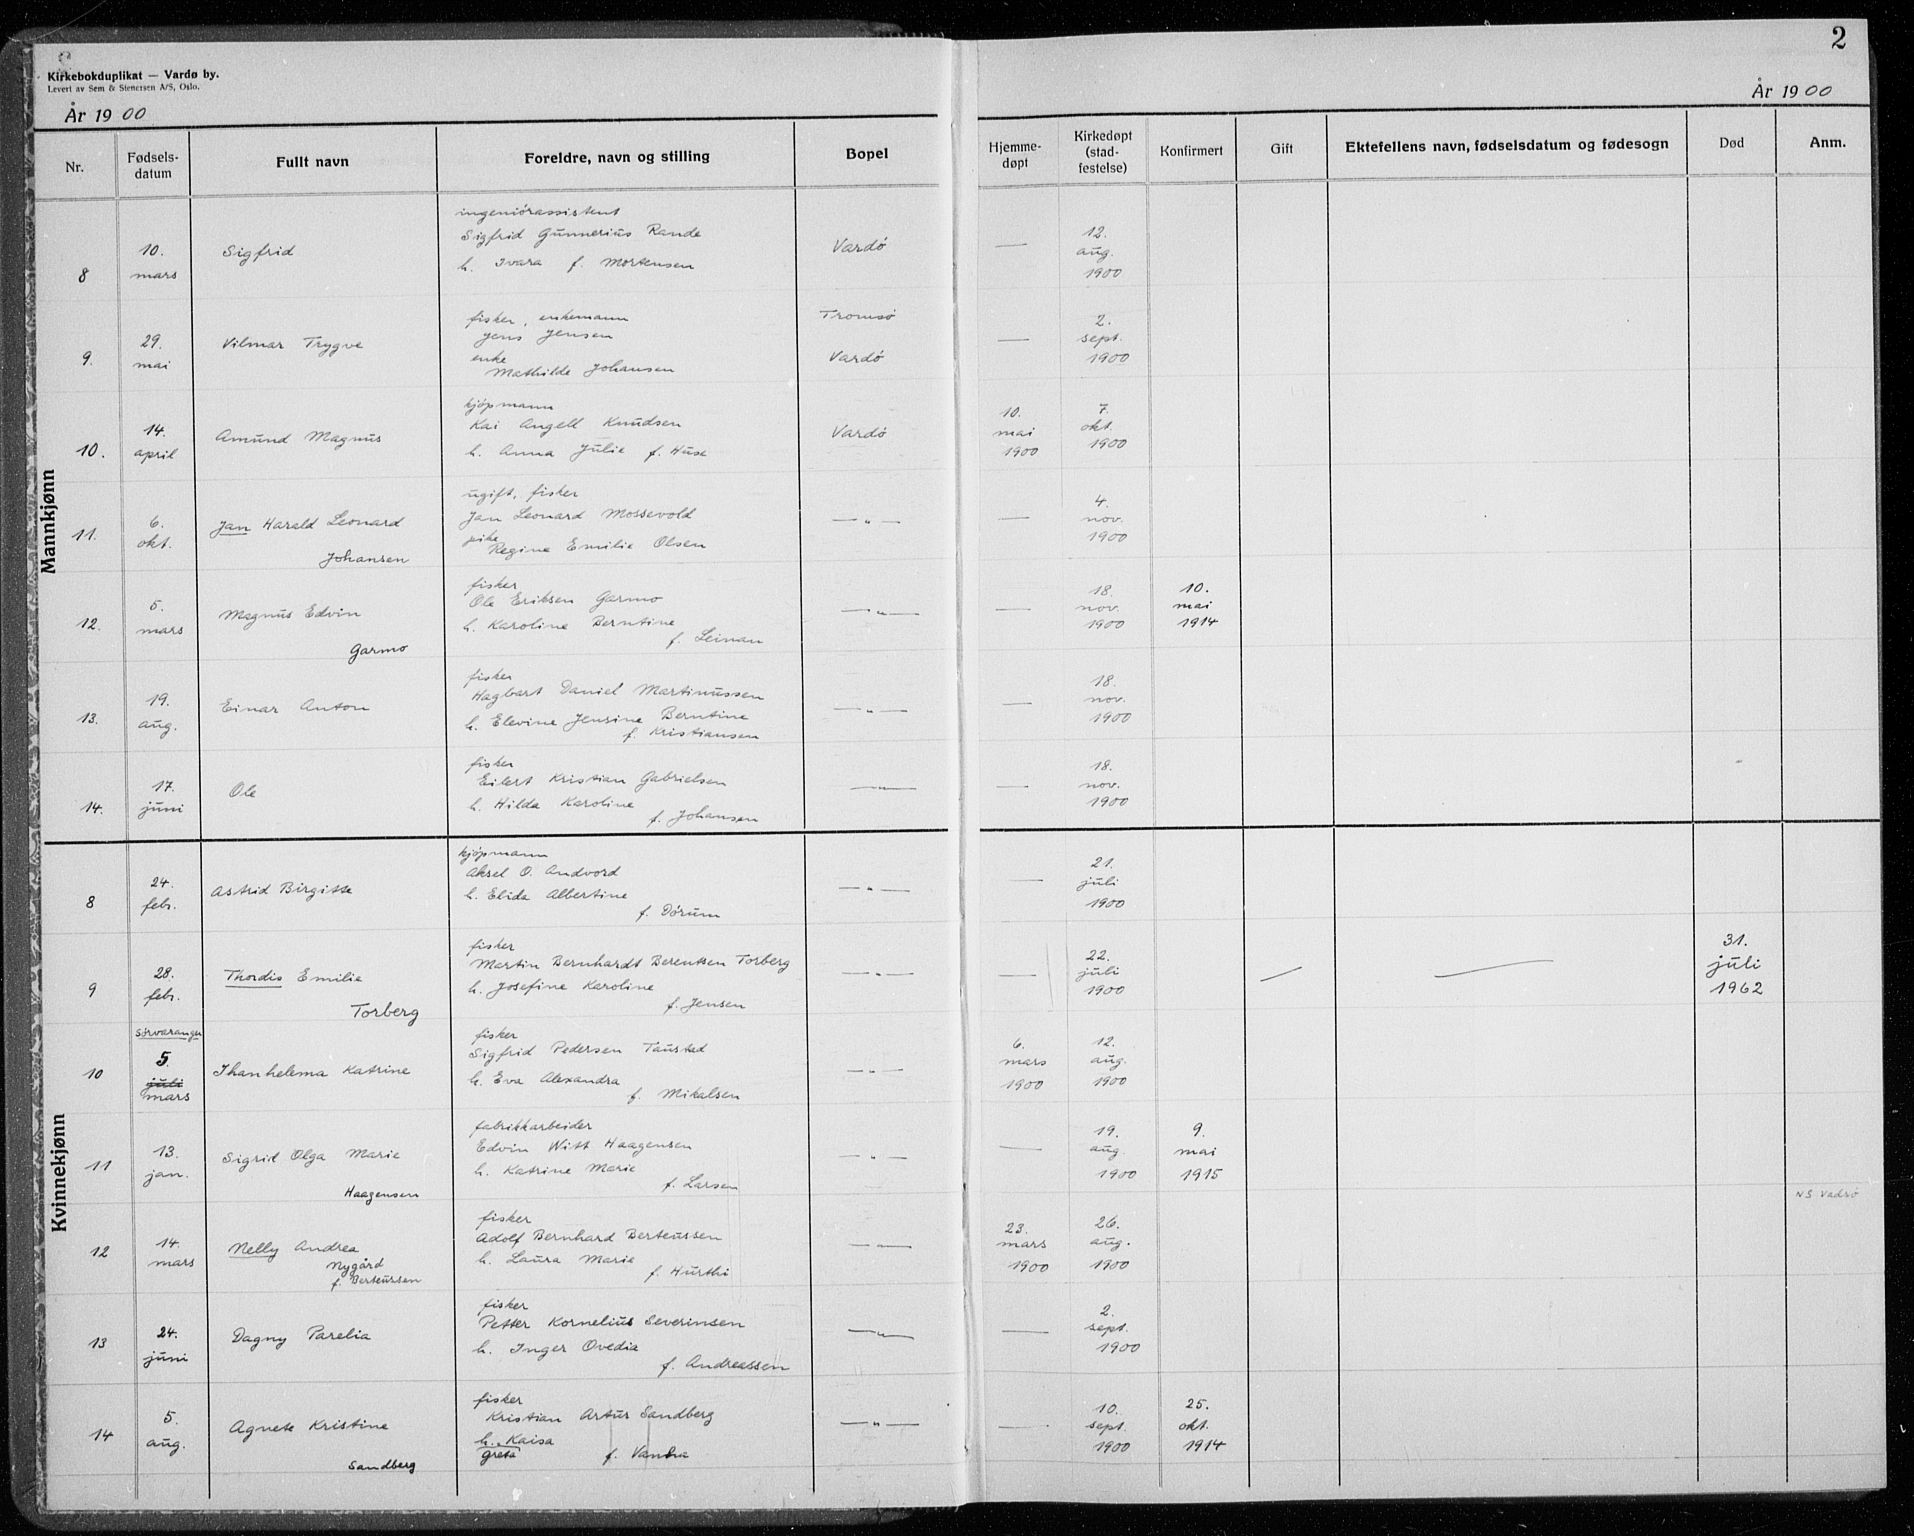 2
Kirkebokduplikat — Vardø by.
Levert av Sem & Stenersen A/S, Oslo.
År 1900
År 1900
Nr. Fødsels-datum Fullt navn Foreldre, navn og stilling Bopel Hjemme-døpt Kirkedøpt (stad-festelse) Konfirmert Gift Ektefellens navn, fødselsdatum og fødesogn Død Anm.
Mannkjønn
ingeniørassistent
10. Sigfrid Sigfrid Gunnerius Rande Vardø — 12.
8 mars h. Ivara f. Mortensen aug.
1900
fisker, enkemann Tromsø
29. Vilmar Trygve Jens Jensen — 2.
9. mai enke Vardø sept.
Mathilde Johansen 1900
kjøpmann
14. Amund Magnus Kai Angell Knudsen Vardø 10. 7.
10. april h. Anna Julie f. Huse mai okt.
1900 1900
ugift, fisker
6. Jan Harald Leonard Jan Leonard Mossevold — " — — 4.
11. okt. pike nov.
Johansen Regine Emilie Olsen 1900
fisker
5. Magnus Edvin Ole Eriksen Garmo — " — — 18. 10.
12. mars h. Karoline Berntine nov. mai
Garmo f. Leinan 1900 1914
fisker
19. Einar Anton Hagbart Daniel Martinussen — " — — 18.
13. aug. h. Elevine Jensine Berntine nov.
f. Kristiansen 1900
fisker
17. Ole Eilert Kristian Gabrielsen — " — — 18.
14. juni h. Hilda Karoline nov.
f. Johansen 1900
Kvinnekjønn
kjøpmann
24. Astrid Birgitte Aksel O. Andvord — " — — 21.
8 febr. h. Elida Albertine juli
f. Dørum 1900
fisker 31.
28. Thordis Emilie Martin Bernhardt Berentsen Torberg — " — — 22. — — juli
9 febr. h. Josefine Karoline juli 1962
Torberg f. Jensen 1900
Sørvaranger fisker
5. Sigfrid Pedersen Taustad 6. 12.
10 juli Thanhelema Katrine h. Eva Alexandra — " — mars aug.
mars f. Mikalsen 1900 1900
fabrikkarbeider
13. Sigrid Olga Marie Edvin Witt Haagensen — " — — 19. 9.
11 jan. h. Katrine Marie aug. mai
Haagensen f. Larsen 1900 1915
NS Vadsø
fisker
14. Nelly Andrea Adolf Bernhard Berteussen — " — 23. 26.
12 mars Nygård h. Laura Marie mars aug.
f. Berteussen f. Hurthi 1900 1900
fisker
24. Dagny Parelia Petter Kornelius Severinsen — " — — 2.
13 juni h. Inger Ovedia sept.
f. Andreassen 1900
fisker
5. Agnete Kristine Kristian Artur Sandberg — " — — 10. 25.
14 aug. h. Kaisa sept. okt.
Sandberg greta f. 1900 1914